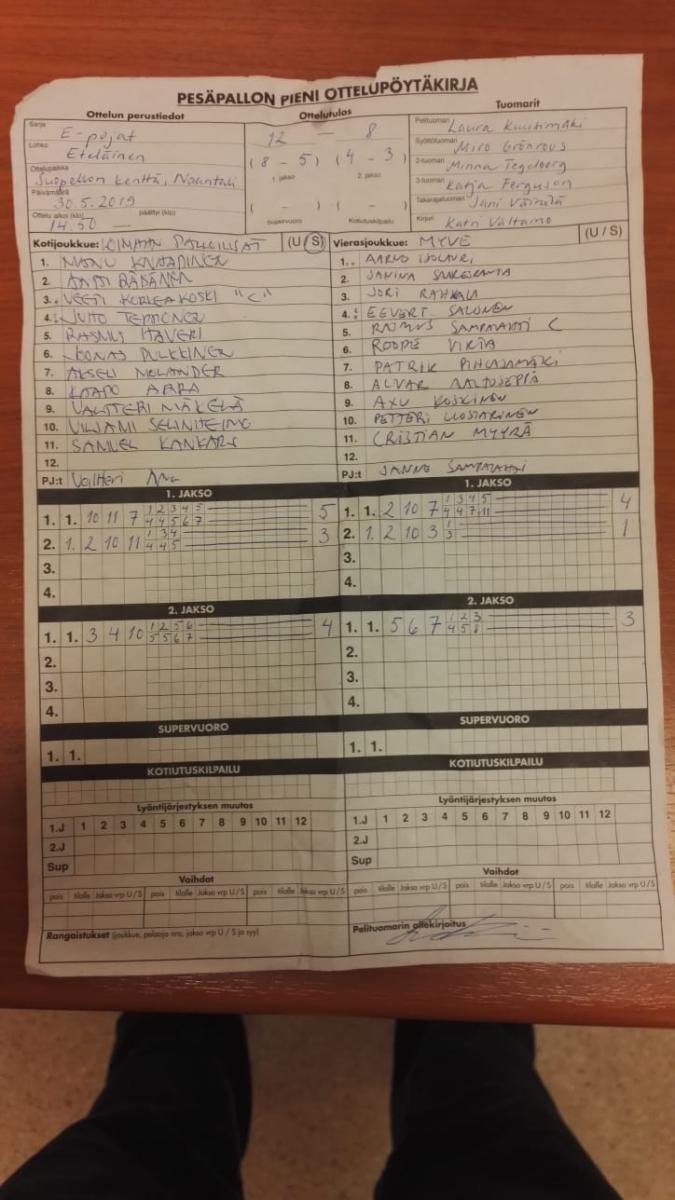 PESÄPALLON PIENI OTTELUPÖYTÄKIRJA
Ottelun perustiedot
Ottelutulos
Tuomarit
Sarja
E-pojat
Lohko
Eteläinen
Ottelupaikka
Suopellon kenttä, Naantali
Päivämäärä
30.5.2019
Ottelu alkoi (klo) päättyi (klo)
14.50 —
12 — 8
(8 - 5) (4 - 3)
1. jakso 2. jakso
( - ) ( - )
Supervuoro Kotiutuskilpailu
Pelituomari Laura Kuutimäki
Syöttötuomari Miro Grönroos
2-tuomari Minna Tegelberg
3-tuomari Katja Ferguson
Takarajatuomari Jani Väimelä
Kirjuri Katri Valtamo
Kotijoukkue: LOIMAAN PALLOILIJAT (U/S)
1. MANU KNAAPINEN
2. ANTTI RÄBÄNEN
3. VEETI KORKEAKOSKI "C"
4. JUHO TEPPONEN
5. RASMUS ITÄVERI
6. JOONAS PULKKINEN
7. AKSELI MOLANDER
8. KAAPO ARRA
9. VALTTERI MÄKELÄ
10. VILJAMI SELINHEIMO
11. SAMUEL KANKARE
12.
PJ:t Valtteri
Vierasjoukkue: MYVE (U/S)
1. AARNO
2. JANINA
3. JORI RAHKALA
4. EEVERT SALONEN
5. RASMUS SAMPALAHTI C
6. ROOPE VIRTA
7. PATRIK PIHLAJAMÄKI
8. ALVAR AALTOSEPPÄ
9. AXU KOSKINEN
10. PETTERI LUOSTARINEN
11. CRISTIAN MYYRÄ
12.
PJ:t JANNE SAMPALAHTI
1. JAKSO
1. 1. 10 11 7 1 2 3 4 5 5
4 4 5 6 7
2. 1. 2 10 11 1 3 4 3
4 4 5
3.
4.
1. JAKSO
1. 1. 2 10 7 1 3 4 5 4
4 4 7 11
2. 1. 2 10 3 1 1
3
3.
4.
2. JAKSO
1. 1. 3 4 10 1 2 5 6 4
5 5 6 7
2.
3.
4.
2. JAKSO
1. 1. 5 6 7 1 2 3 3
4 5 8
2.
3.
4.
SUPERVUORO
1. 1.
SUPERVUORO
1. 1.
KOTIUTUSKILPAILU
KOTIUTUSKILPAILU
Lyöntijärjestyksen muutos
1.J 1 2 3 4 5 6 7 8 9 10 11 12
2.J
Sup
Lyöntijärjestyksen muutos
1.J 1 2 3 4 5 6 7 8 9 10 11 12
2.J
Sup
Vaihdot
pois tilalle Jakso vrp U/S pois tilalle Jakso vrp U/S pois tilalle Jakso vrp U/S
Vaihdot
pois tilalle Jakso vrp U/S pois tilalle Jakso vrp U/S pois tilalle Jakso vrp U/S
Rangaistukset (joukkue, pelaaja nro, jakso vrp U/S ja syy)
Pelituomarin allekirjoitus